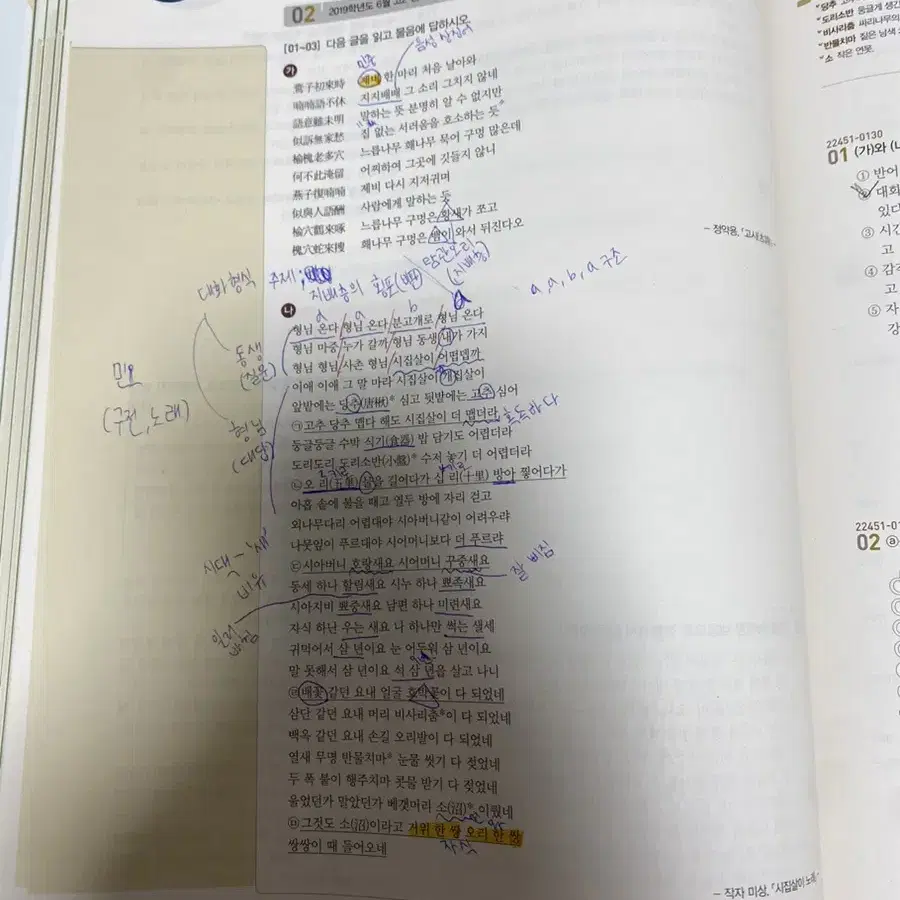 02 2019학년도 6월 고2
[01~03] 다음 글을 읽고 물음에 답하시오.
음성 상징어
민중
가
鷰子初來時 제비 한 마리 처음 날아와
喃喃語不休 지지배배 그 소리 그치지 않네
語意雖未明 말하는 뜻 분명히 알 수 없지만
似訴無家愁 집 없는 서러움을 호소하는 듯*
榆槐老多穴 느릅나무 홰나무 묵어 구멍 많은데
何不此淹留 어찌하여 그곳에 깃들지 않니
燕子復喃喃 제비 다시 지저귀며
似與人語酬 사람에게 말하는 듯
榆穴鸛來啄 느릅나무 구멍은 황새가 쪼고
槐穴蛇來搜 홰나무 구멍은 뱀이 와서 뒤진다오
- 정약용, 「고시
탐관오리
(지배층)
주제;
지배층의 횡포(비판)
대화 형식
a, a, b, a 구조
나
a a b a
형님 온다 형님 온다 분고개로 형님 온다
형님 마중 누가 갈까 형님 동생 내가 가지
형님 형님 사촌 형님 시집살이 어떱뎁까
이애 이애 그 말 마라 시집살이 개집살이
앞밭에는 당추(唐楸)* 심고 뒷밭에는 고추 심어
㉠고추 당추 맵다 해도 시집살이 더 맵더라
둥글둥글 수박 식기(食器) 밥 담기도 어렵더라
도리도리 도리소반(小盤)* 수저 놓기 더 어렵더라
㉡오 리(五里) 물을 길어다가 십 리(十里) 방아 찧어다가
아홉 솥에 불을 때고 열두 방에 자리 걷고
외나무다리 어렵대야 시아버니같이 어려우랴
나뭇잎이 푸르대야 시어머니보다 더 푸르랴
㉢시아버니 호랑새요 시어머니 꾸중새요
동세 하나 할림새요 시누 하나 뾰족새요
시아지비 뾰중새요 남편 하나 미련새요
자식 하난 우는 새요 나 하나만 썩는 샐세
귀먹어서 삼 년이요 눈 어두워 삼 년이요
말 못해서 삼 년이요 석 삼 년을 살고 나니
㉣배꽃 같던 요내 얼굴 호박꽃이 다 되었네
삼단 같던 요내 머리 비사리춤*이 다 되었네
백옥 같던 요내 손길 오리발이 다 되었네
열새 무명 반물치마* 눈물 씻기 다 젖었네
두 폭 붙이 행주치마 콧물 받기 다 젖었네
울었던가 말았던가 베갯머리 소(沼)* 이뤘네
㉤그것도 소(沼)이라고 거위 한 쌍 오리 한 쌍
쌍쌍이 때 들어오네
- 작자 미상, 「시집살이 노래」
동생
(질문)
민요
(구전, 노래)
형님
(대답)
혹독하다
시댁 - '새'
비유
잘 삐짐
자식
당추
*도리소반 둥글게 생긴
*비사리춤 싸리나무의
*반물치마 짙은 남색
*소 작은 연못.
22451-0130
01 (가)와 (나
① 반어
② 대화
있다
③ 시간
고
④ 감각
고
⑤ 자
22451-0
02 ⓐ